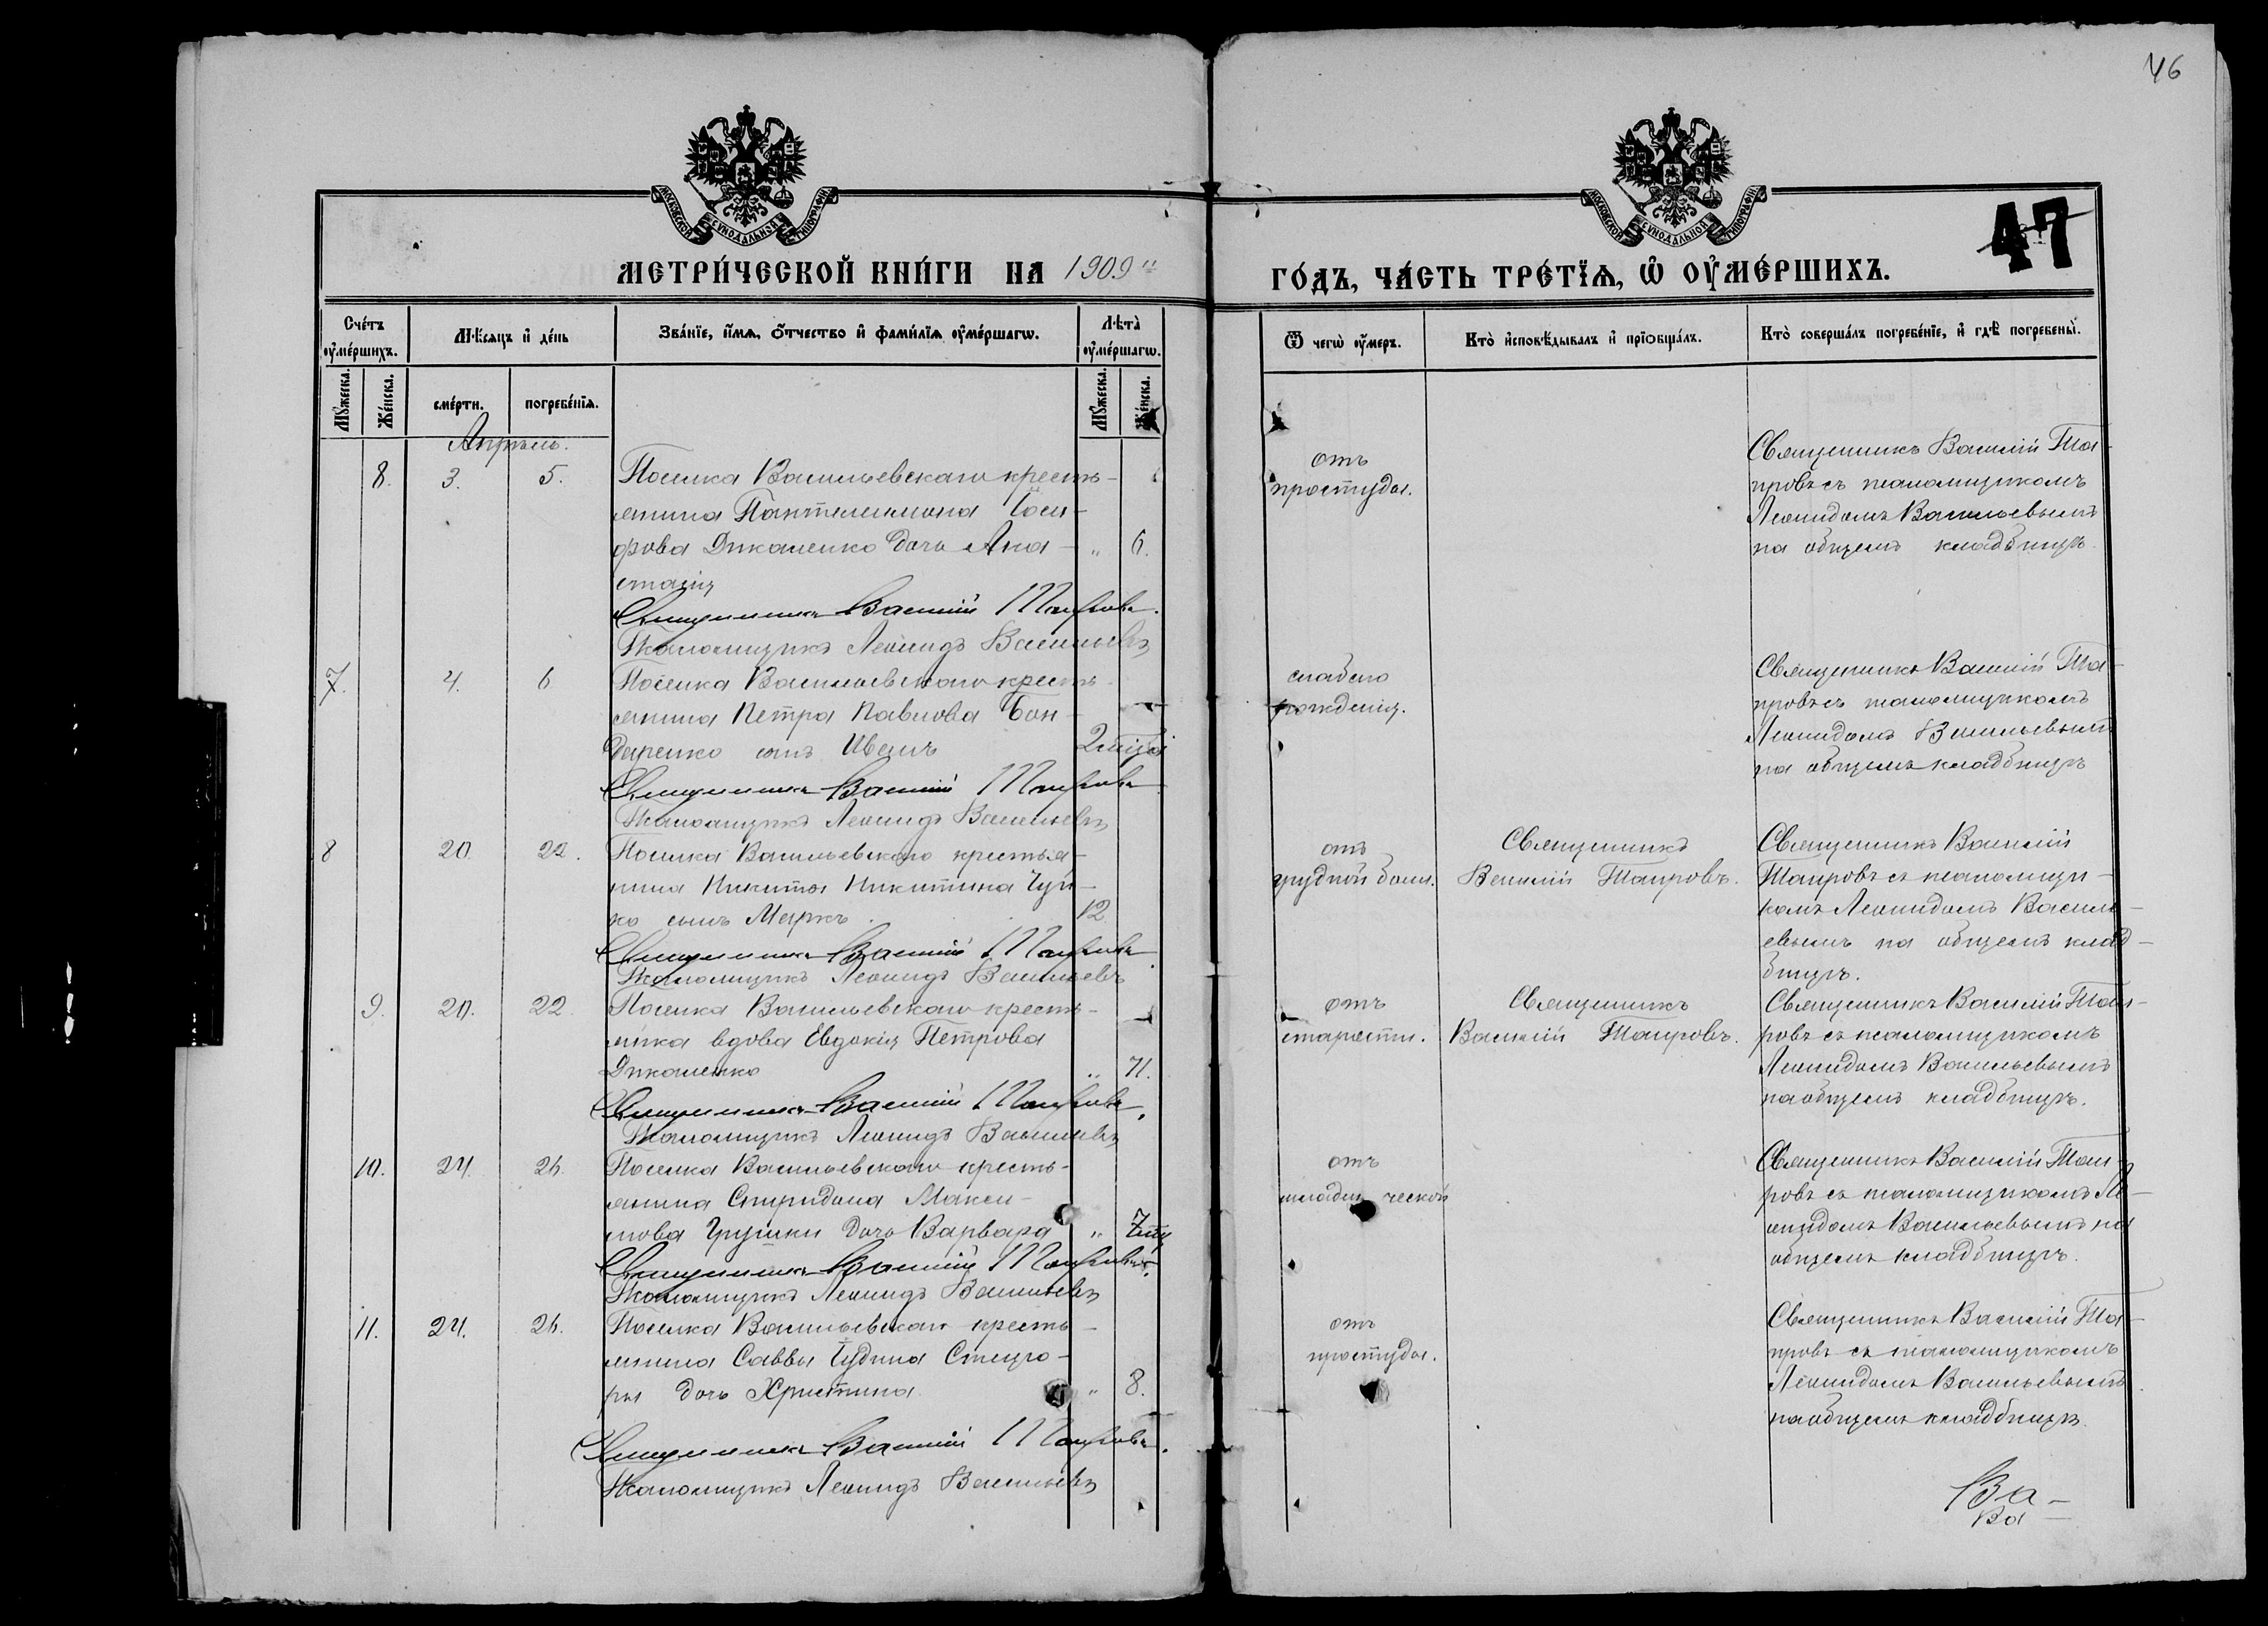 46
МОСКОВСКОЙ СѴНОДАЛЬНОЙ ТИПОГРАФІИ
МОСКОВСКОЙ СѴНОДАЛЬНОЙ ТИПОГРАФІИ
47
МЕТРИ́ЧЕСКОЙ КНИ́ГИ НА 1909
ГО́ДЪ, ЧА́СТЬ ТРЕ́ТЇѦ, Ѡ҆ ОУ҆МЕ́РШИХЪ.
Сче́тъ оу҆ме́ршихъ.
Мѣ́сяцъ и҆ де́нь
Зва́нїе, и҆́мя, ѻ҆́тчество и҆ фами́лїя оу҆ме́ршагѡ.
Лѣта̀ оу҆ме́ршагѡ.
Ѿ чегѡ̀ оу҆́меръ.
Кто̀ и҆сповѣ́дывалъ и҆ прїѻбща́лъ.
Кто̀ соверша́лъ погребе́нїе, и҆ гдѣ̀ погребены̀.
Мꙋ́жеска.
Же́нска.
сме́рти.
погребе́нїя.
Мꙋ́жеска.
Же́нска.
Апрѣль.
8. 3. 5. Поселка Васильевскаго кресть-
янина Пантелеимона Іоси-
фова Дикаленко дочь Ана- " 6.
стасія
Священникъ Василій Таировъ.
Псаломщикъ Леонидъ Васильевъ
отъ
простуды.
Священникъ Василій Та-
ировъ съ псаломщикомъ
Леонидомъ Васильевымъ
на общемъ кладбищѣ.
7. 4. 6 Поселка Васильевскаго кресть-
янина Петра Павлова Бон-
даренко сынъ Иванъ 2
Священникъ Василій Таировъ
Псаломщикъ Леонидъ Васильевъ
слабаго
рожденія.
Священникъ Василій Та-
ировъ съ псаломщикомъ
Леонидомъ Васильевымъ
на общемъ кладбищѣ
8 20 22. Поселка Васильевскаго крестья-
нина Никиты Никитина Чуй-
ко сынъ Маркъ. 12
Священникъ Василій Таировъ
Псаломщикъ Леонидъ Васильевъ
отъ
грудной боли.
Священникъ
Василій Таировъ.
Священникъ Василій
Таировъ съ псаломщи-
комъ Леонидомъ Василь-
евымъ на общемъ клад-
бищѣ.
9. 20. 22. Поселка Васильевскаго кресть-
янка вдова Евдокія Петрова
Дикаленко " 71.
Священникъ Василій Таировъ.
Псаломщикъ Леонидъ Васильевъ
отъ
старости.
Священникъ
Василій Таировъ.
Священникъ Василій Таи-
ровъ съ псаломщикомъ
Леонидомъ Васильевымъ
на общемъ кладбищѣ.
10. 24. 26. Поселка Васильевскаго кресть-
янина Спиридона Макси-
мова Грушки дочь Варвара " 7
Священникъ Василій Таировъ.
Псаломщикъ Леонидъ Васильевъ
отъ
младен ческой
Священникъ Василій Таи-
ровъ съ псаломщикомъ Ле-
онидомъ Васильевымъ на
общемъ кладбищѣ.
11. 24. 26. Поселка Васильевскаго кресть-
янина Саввы
дочь Христина " 8.
Священникъ Василій Таировъ.
Псаломщикъ Леонидъ Васильевъ
отъ
простуды.
Священникъ Василій Та-
ировъ съ псаломщикомъ
Леонидомъ Васильевымъ
на общемъ кладбищѣ.
Ва-
Ва-